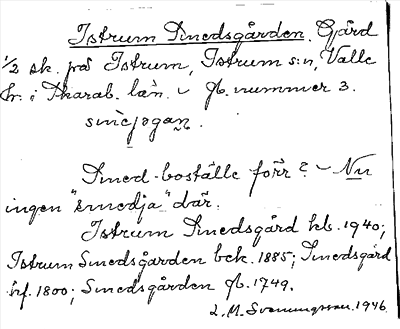 Istrum Smedsgården. Gård
1/2 sk. på Istrum, Istrum s:n, Valle
hr. i Skarab. län. – Jb. nummer 3.
smejsgan.
Smed-boställe förr? – Nu
ingen "smedja" där.
Istrum Smedsgård kb. 1940;
Istrum Smedsgården bek. 1885; Smedsgård
hf. 1800; Smedsgården jb. 1749.
L. M. Svenungsson. 1946.